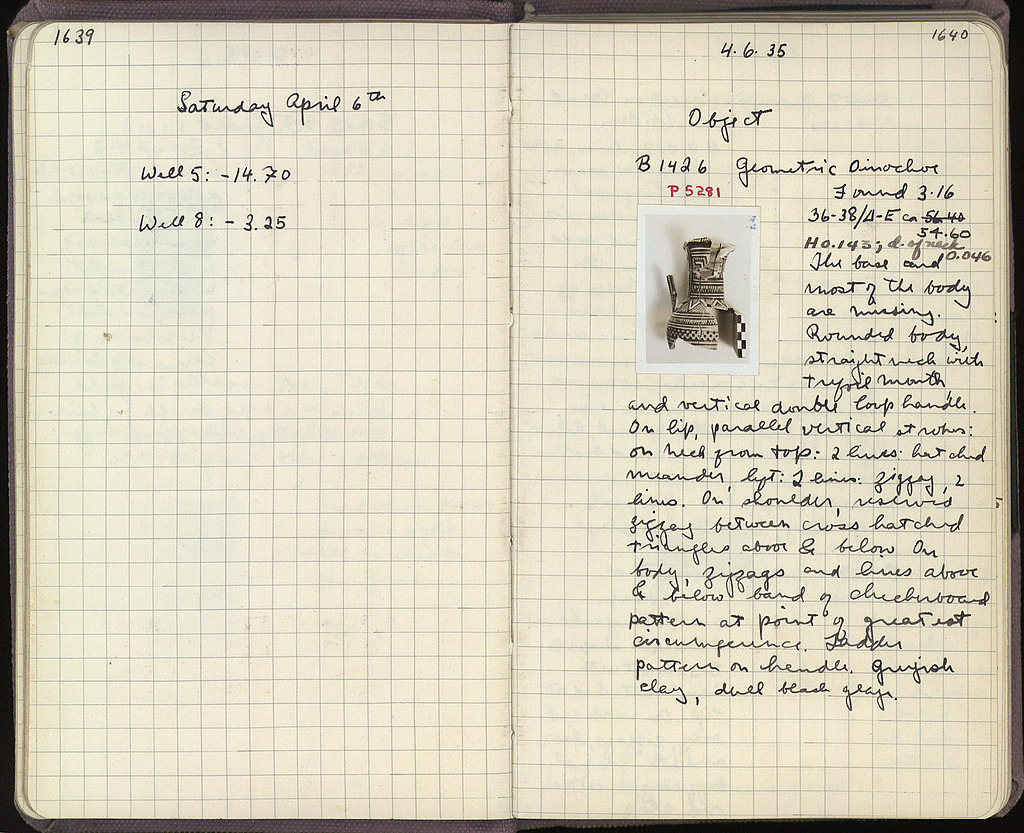 1639
Saturday April 6th
Well 5: -14.70
Well 8: - 3.25
1640
4.6.35
Object
B 1426 Geometric Oinochoe
P 5281
Found 3.16
36-38/Δ-E ca 56.40
54.60
H 0.143; d. of neck
0.046
The base and
most of the body
are missing.
Rounded body,
straight neck with
trefoil mouth,
and vertical double loop handle.
On lip, parallel vertical strokes:
on neck from top: 2 lines: hatched
meander, left: 2 lines: zigzag, 2
lines. On shoulder, reserved
zigzag between cross hatched
triangles above & below On
body, zigzags and lines above
& below band of checkerboard
pattern at point of greatest
circumference. Ladder
pattern on handle. Greyish
clay, dull black glaze.